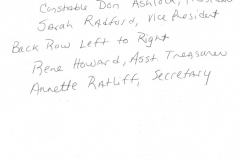 Constable Don Ashlock,
Sarah Radford, Vice President
Back Row Left to Right
Rene Howard, Asst Treasurer
Annette Ratliff, Secretary